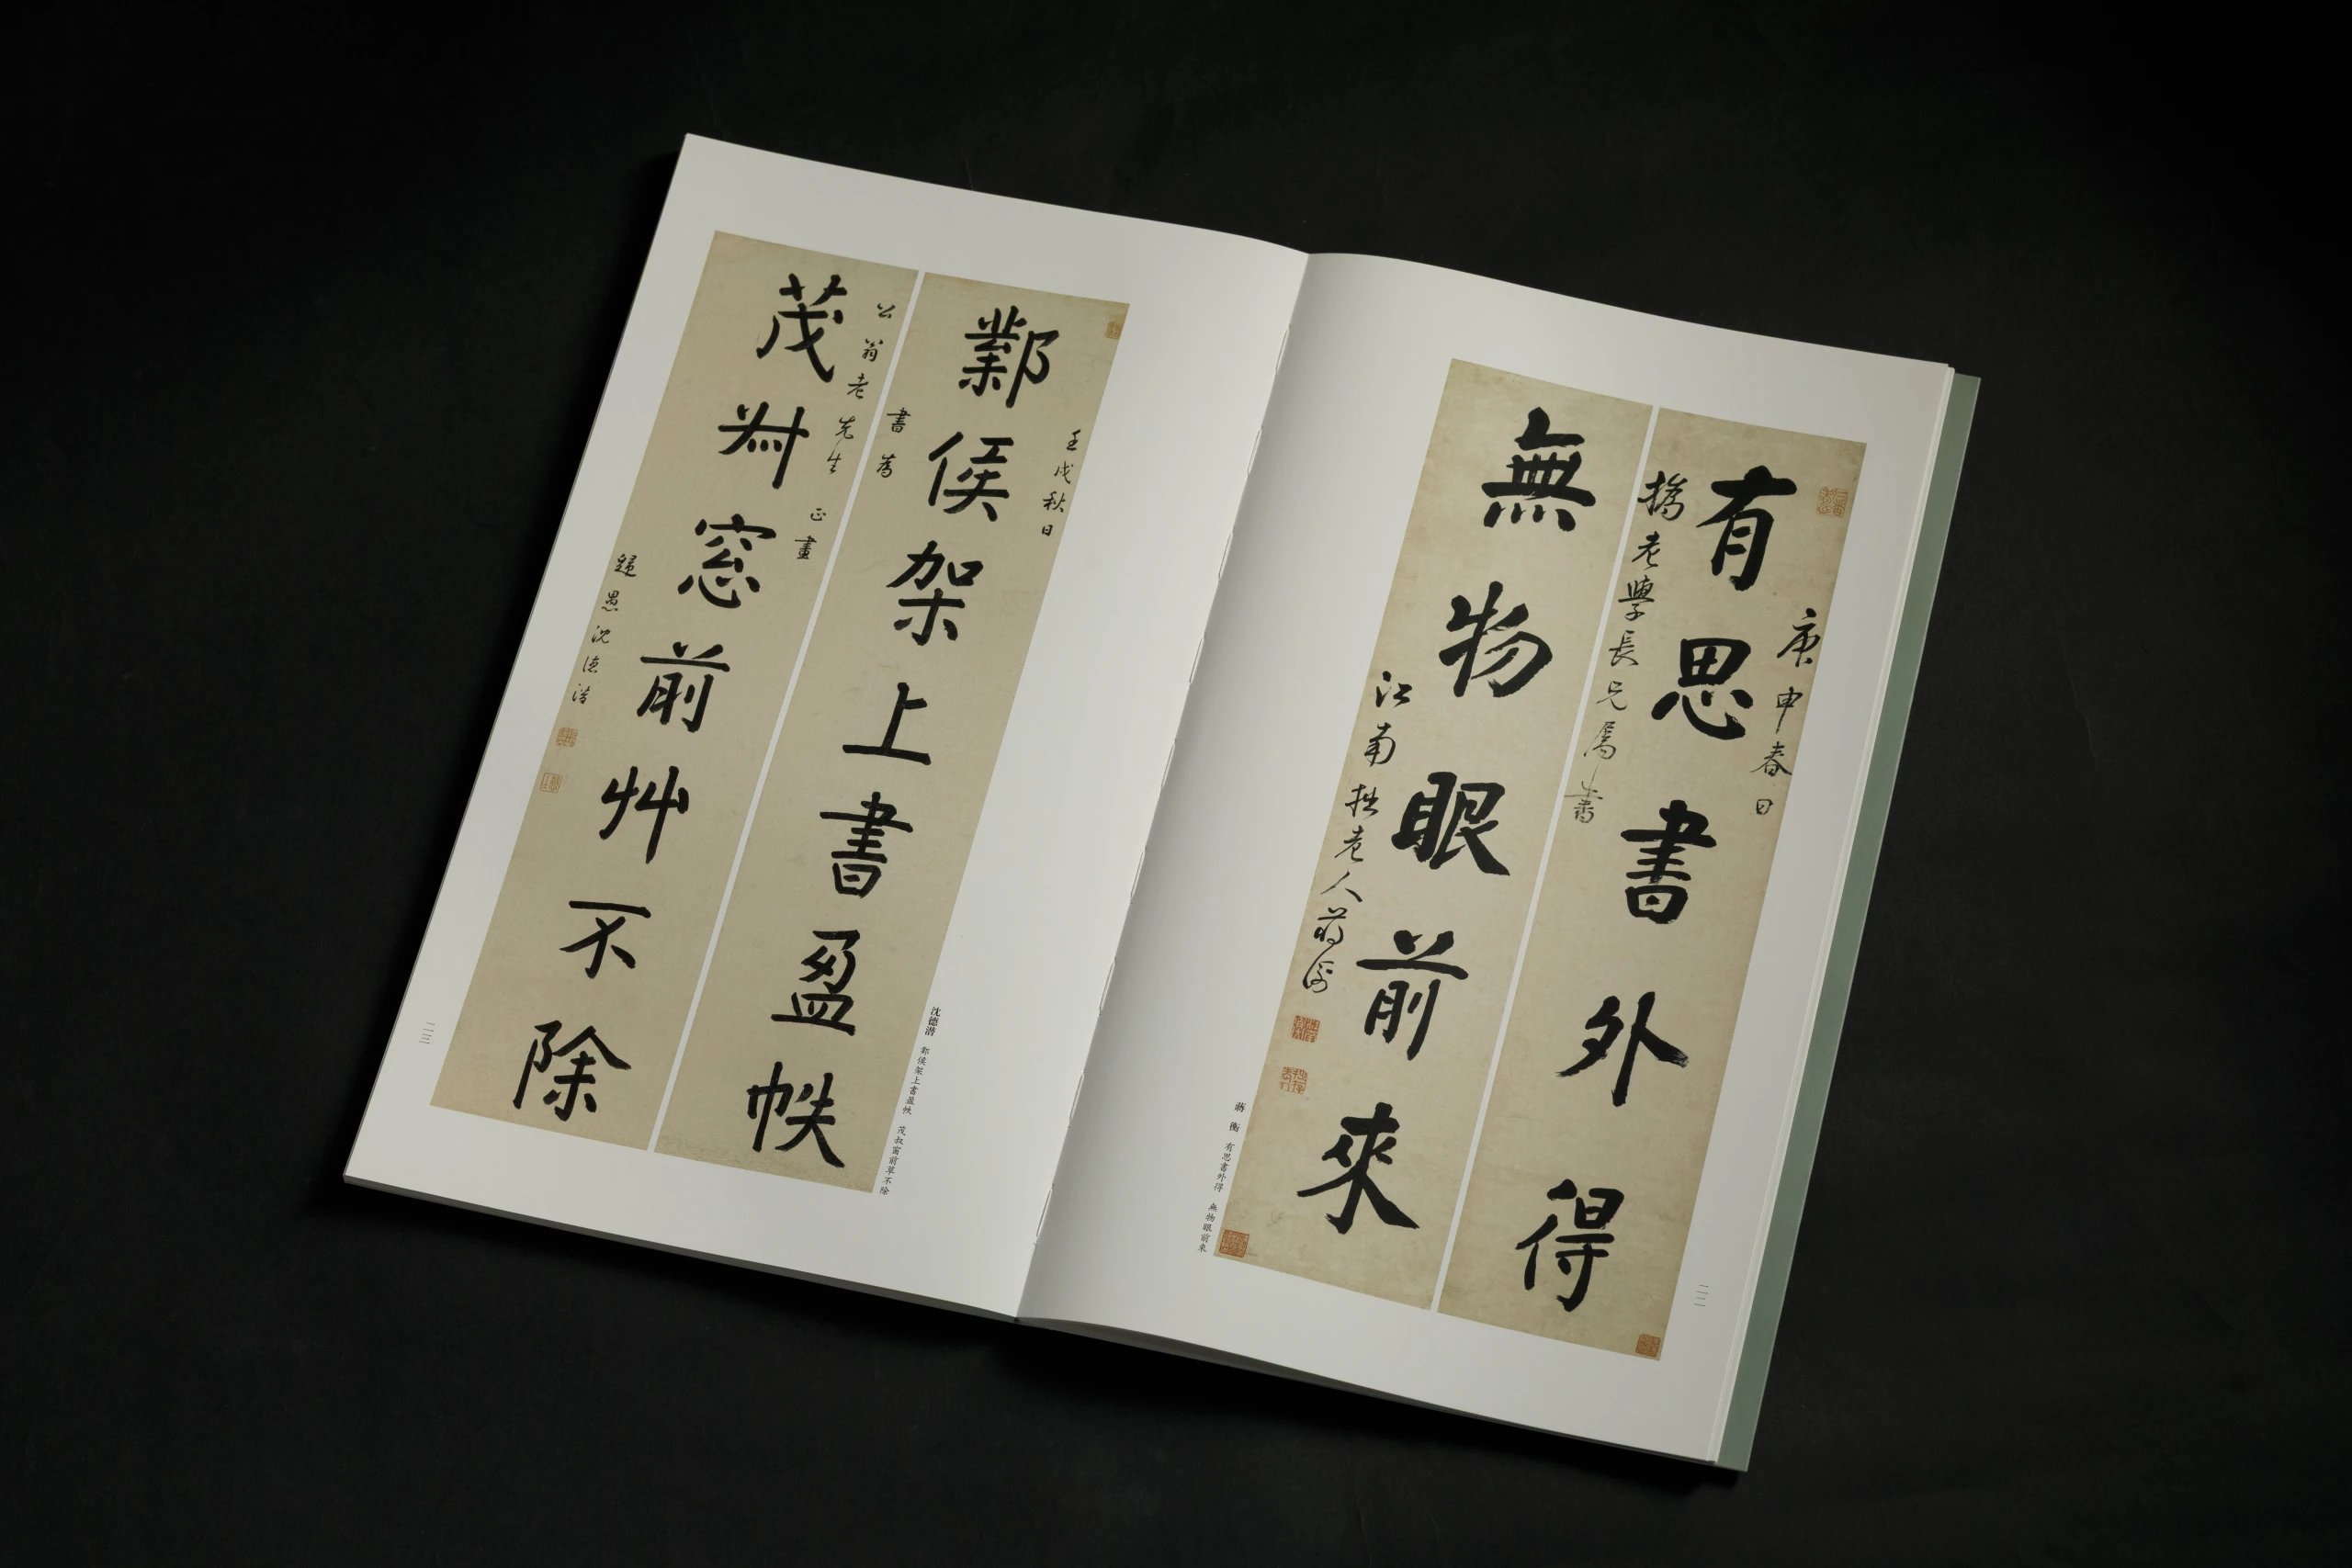 庚申春日
有思書外得
橋老學長兄屬書
無物眼前來
江南拙老人蔣衡
蔣衡 有思書外得 無物眼前來
二二
壬戌秋日
鄴侯架上書盈帙
書為
公翁老先生 正
茂叔窓前艸不除
歸愚沈德潛
沈德潛 鄴侯架上書盈帙 茂叔窗前草不除
二三